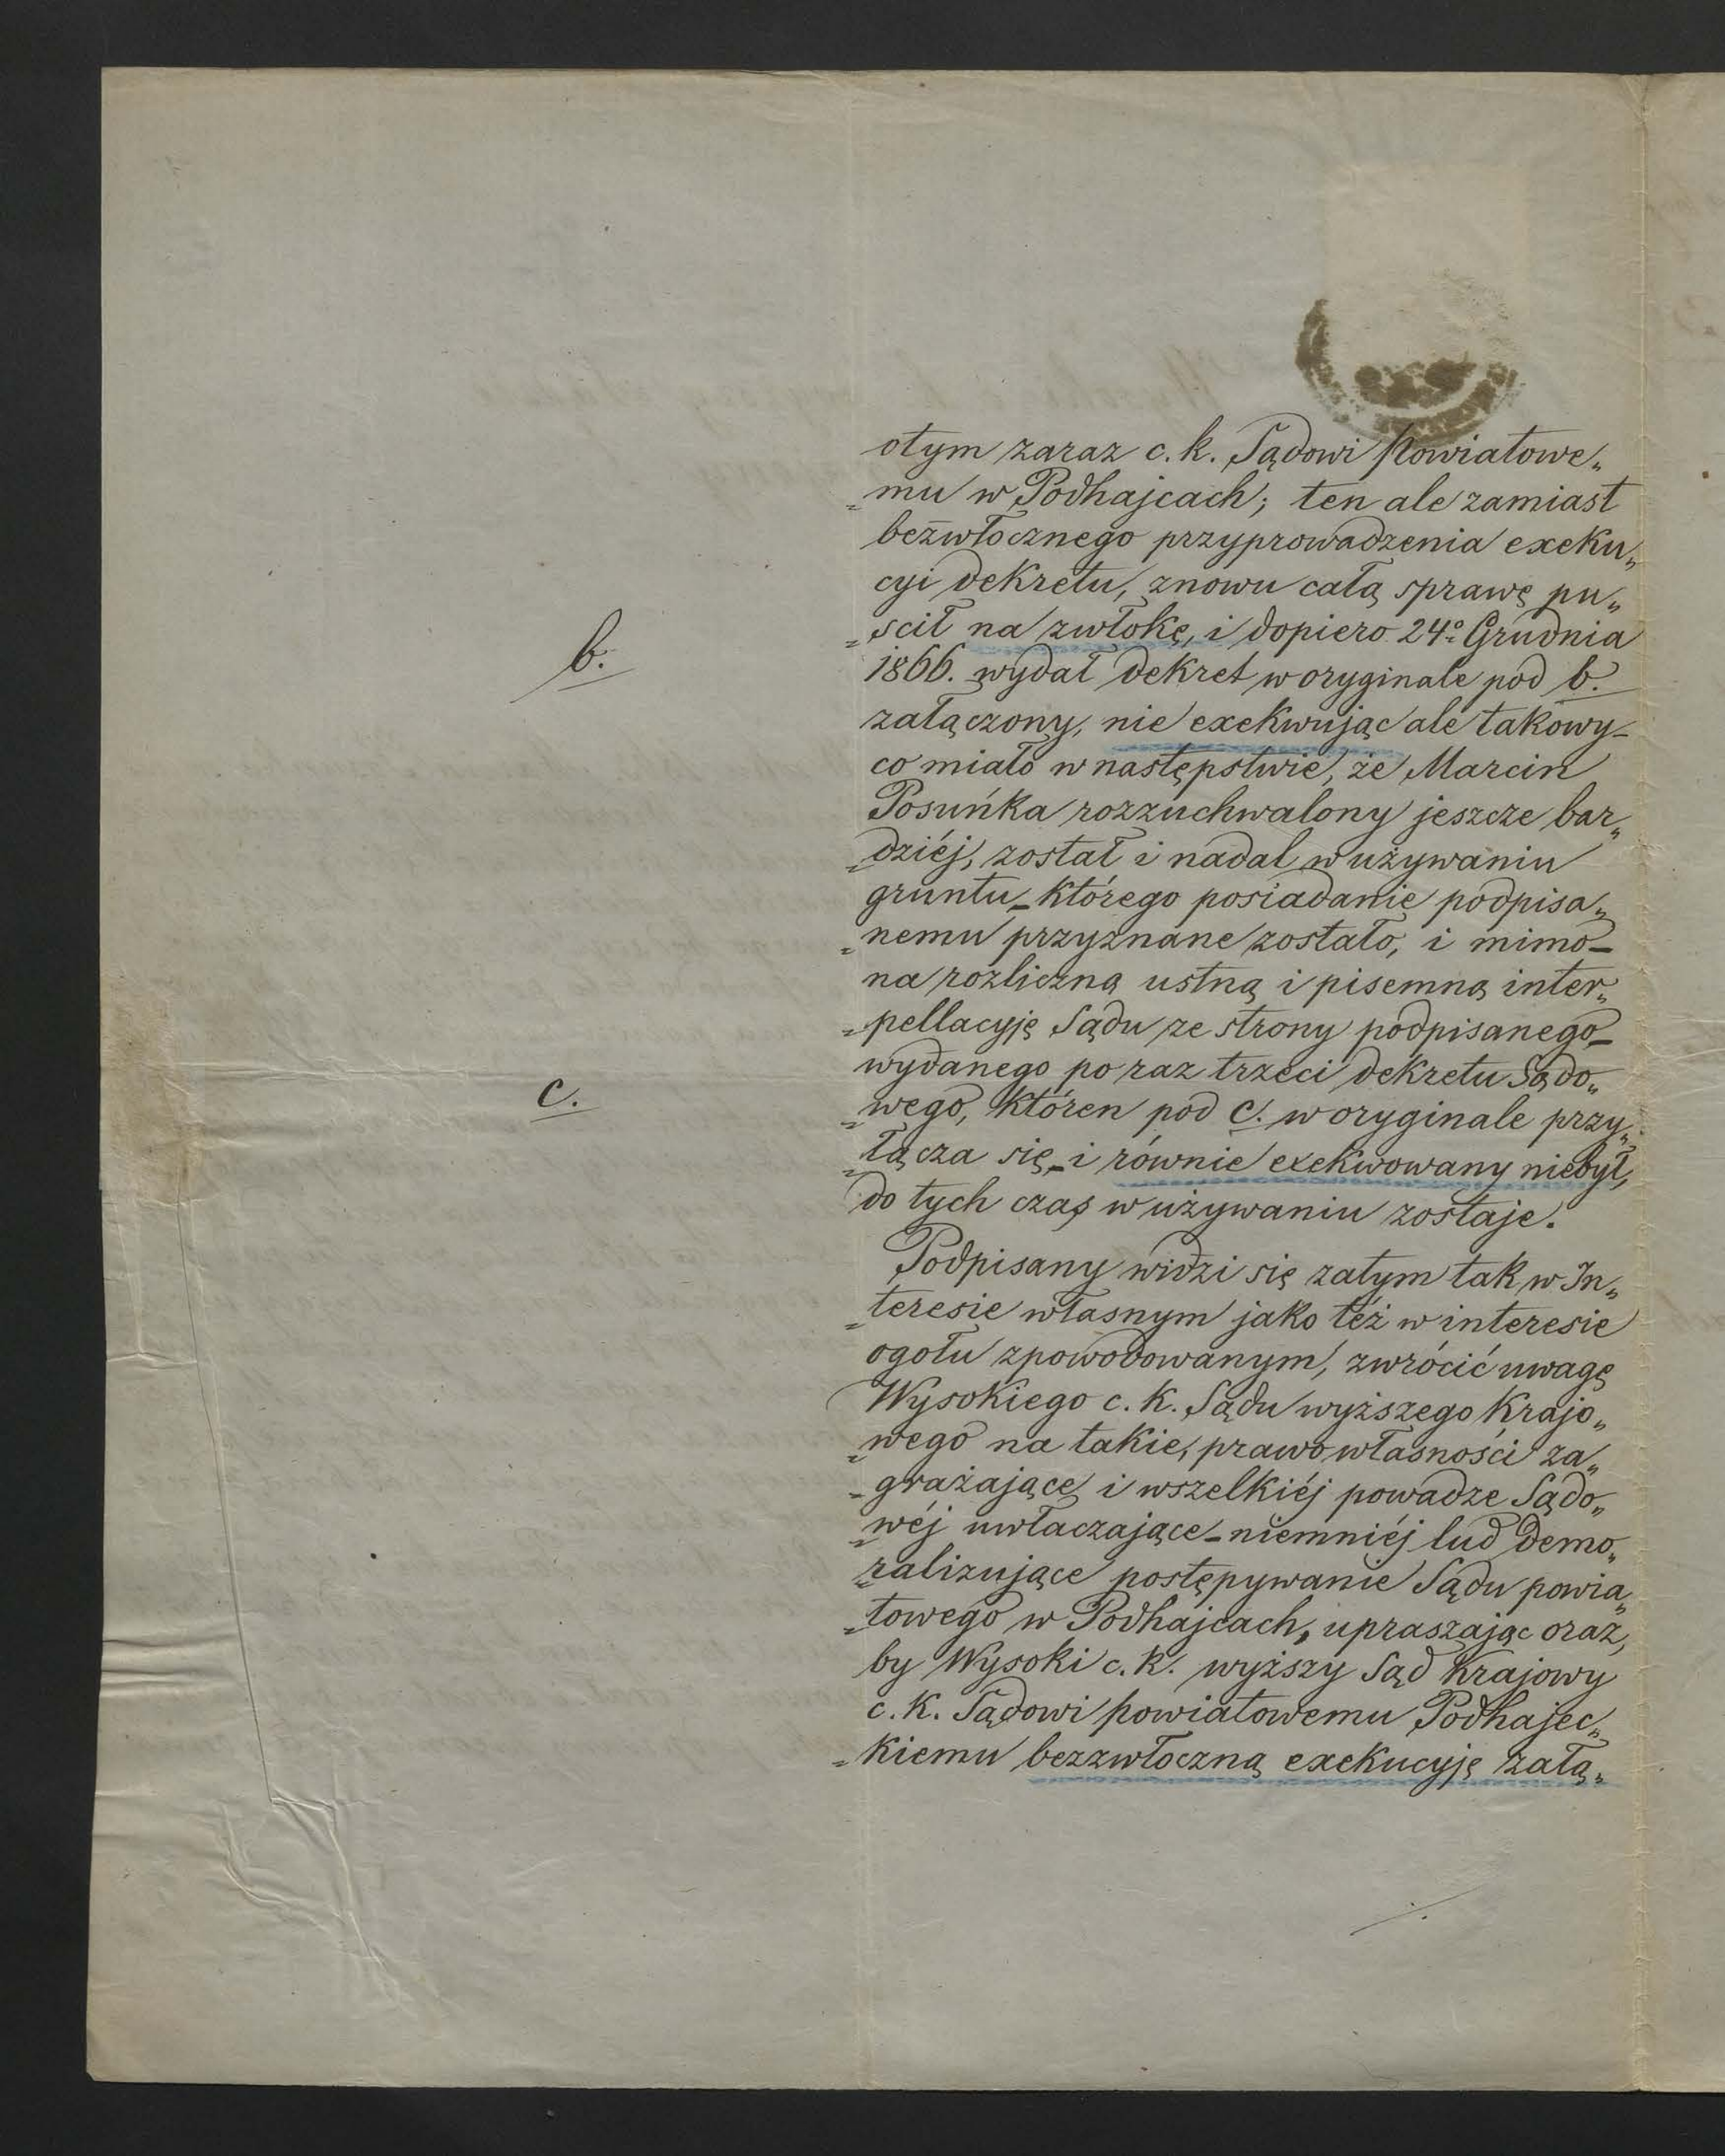 otym zaraz c. k. Sądowi Powiatowe„
„mu w Podhajcach; ten ale zamiast
bezwłocznego przyprowadzenia exeku„
cyi dekretu, znowu całą sprawę pu„
„scił na zwłokę, i dopiero 24º Grudnia
b.
1866. wydał dekret w oryginale pod b.
załączony, nie exekwując ale takowy_
co miało w następstwie, że Marcin
Posuńka rozzuchwalony jeszcze bar„
„dziéj, został i nadal w używaniu
gruntu_ którego posiadanie podpisa„
„nemu przyznane zostało, i mimo_
na rozliczną ustną i pisemną inter„
„pellacyję Sądu ze strony podpisanego_
wydanego po raz trzeci dekretu Sądo„
c.
„wego, któren pod c. w oryginale przy„
„łącza się_ i równie exekwowany niebył,
do tych czas w używaniu zostaje.
Podpisany widzi się zatym tak w In„
„teresie własnym jako też w interesie
ogołu zpowodowanym, zwrócić uwagę
Wysokiego c. k. Sądu wyższego Krajo„
„wego na takie, prawo własności za„
„grażające i wszelkiéj powadze Sądo„
„wéj uwłaczające_ niemniéj lud demo„
„ralizujące postępywanie Sądu powia„
„towego w Podhajcach, upraszając oraz,
by Wysoki c. k. wyższy Sąd Krajowy
c. k. Sądowi powiatowemu Podhajec„
„kiemu bezzwłoczną exekucyję załą„
./.